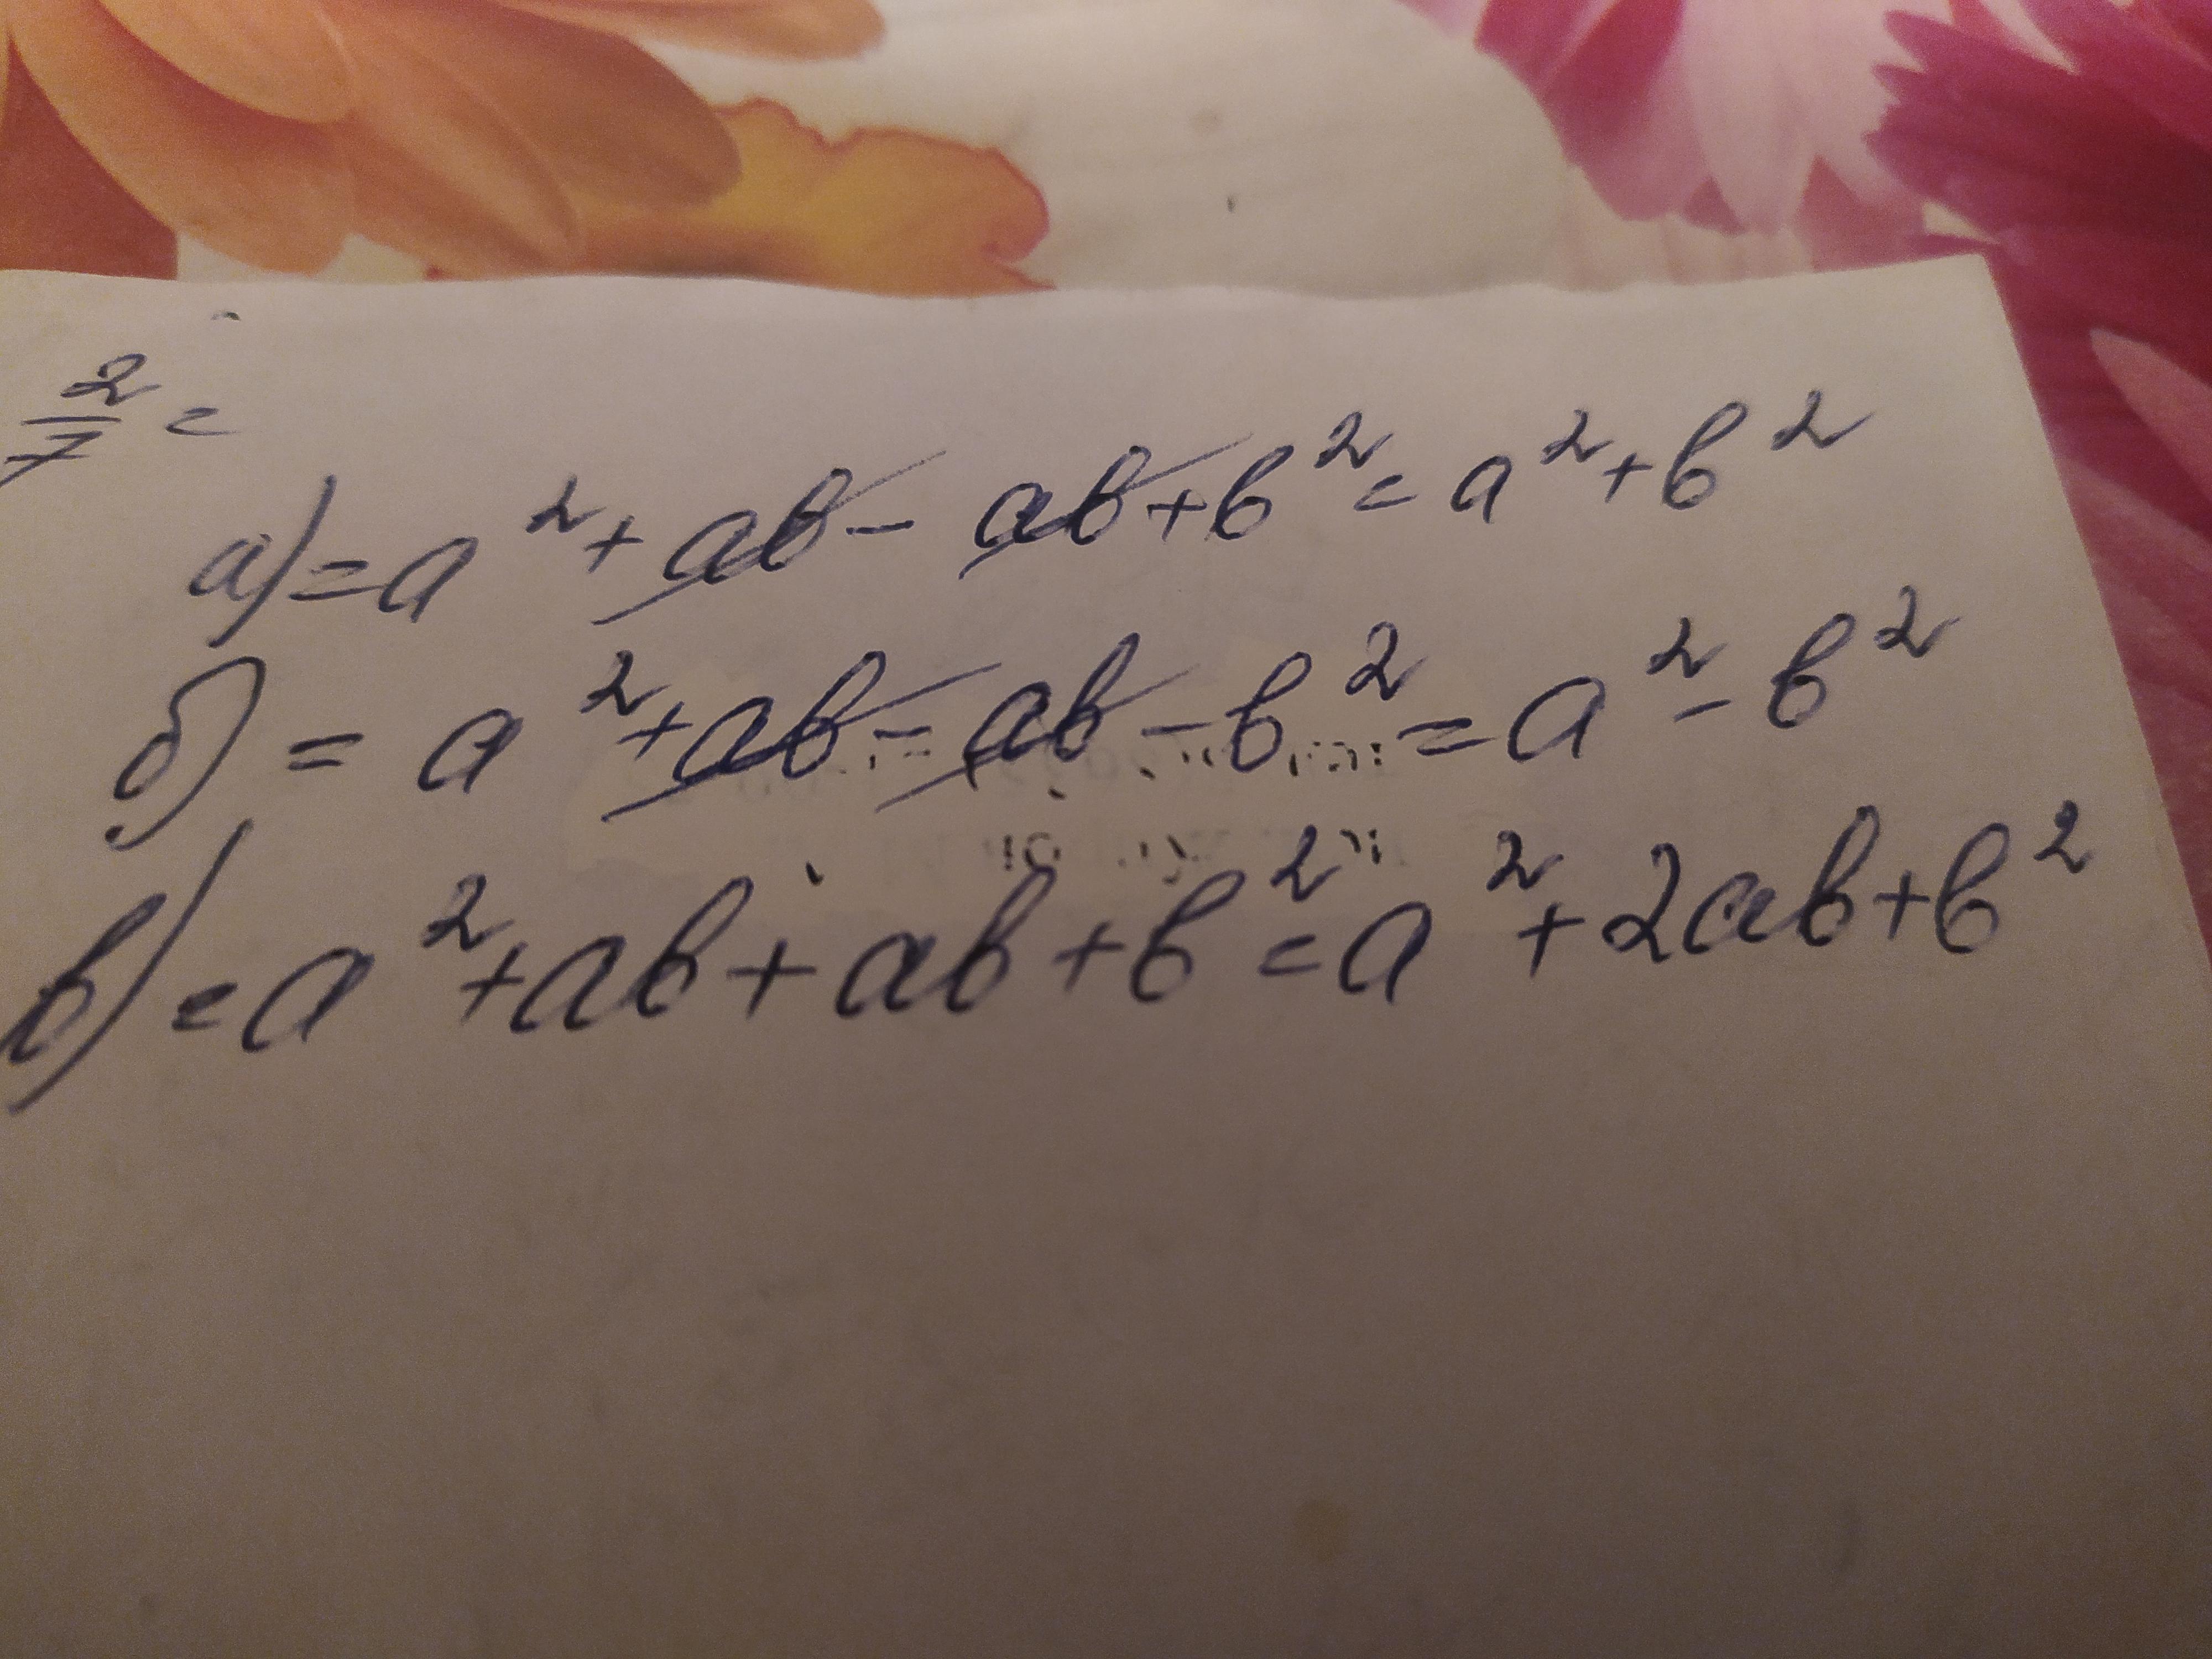 2/7 =
а) = a² + ab - ab + b² = a² + b²
б) = a² + ab - ab - b² = a² - b²
в) = a² + ab + ab + b² = a² + 2ab + b²